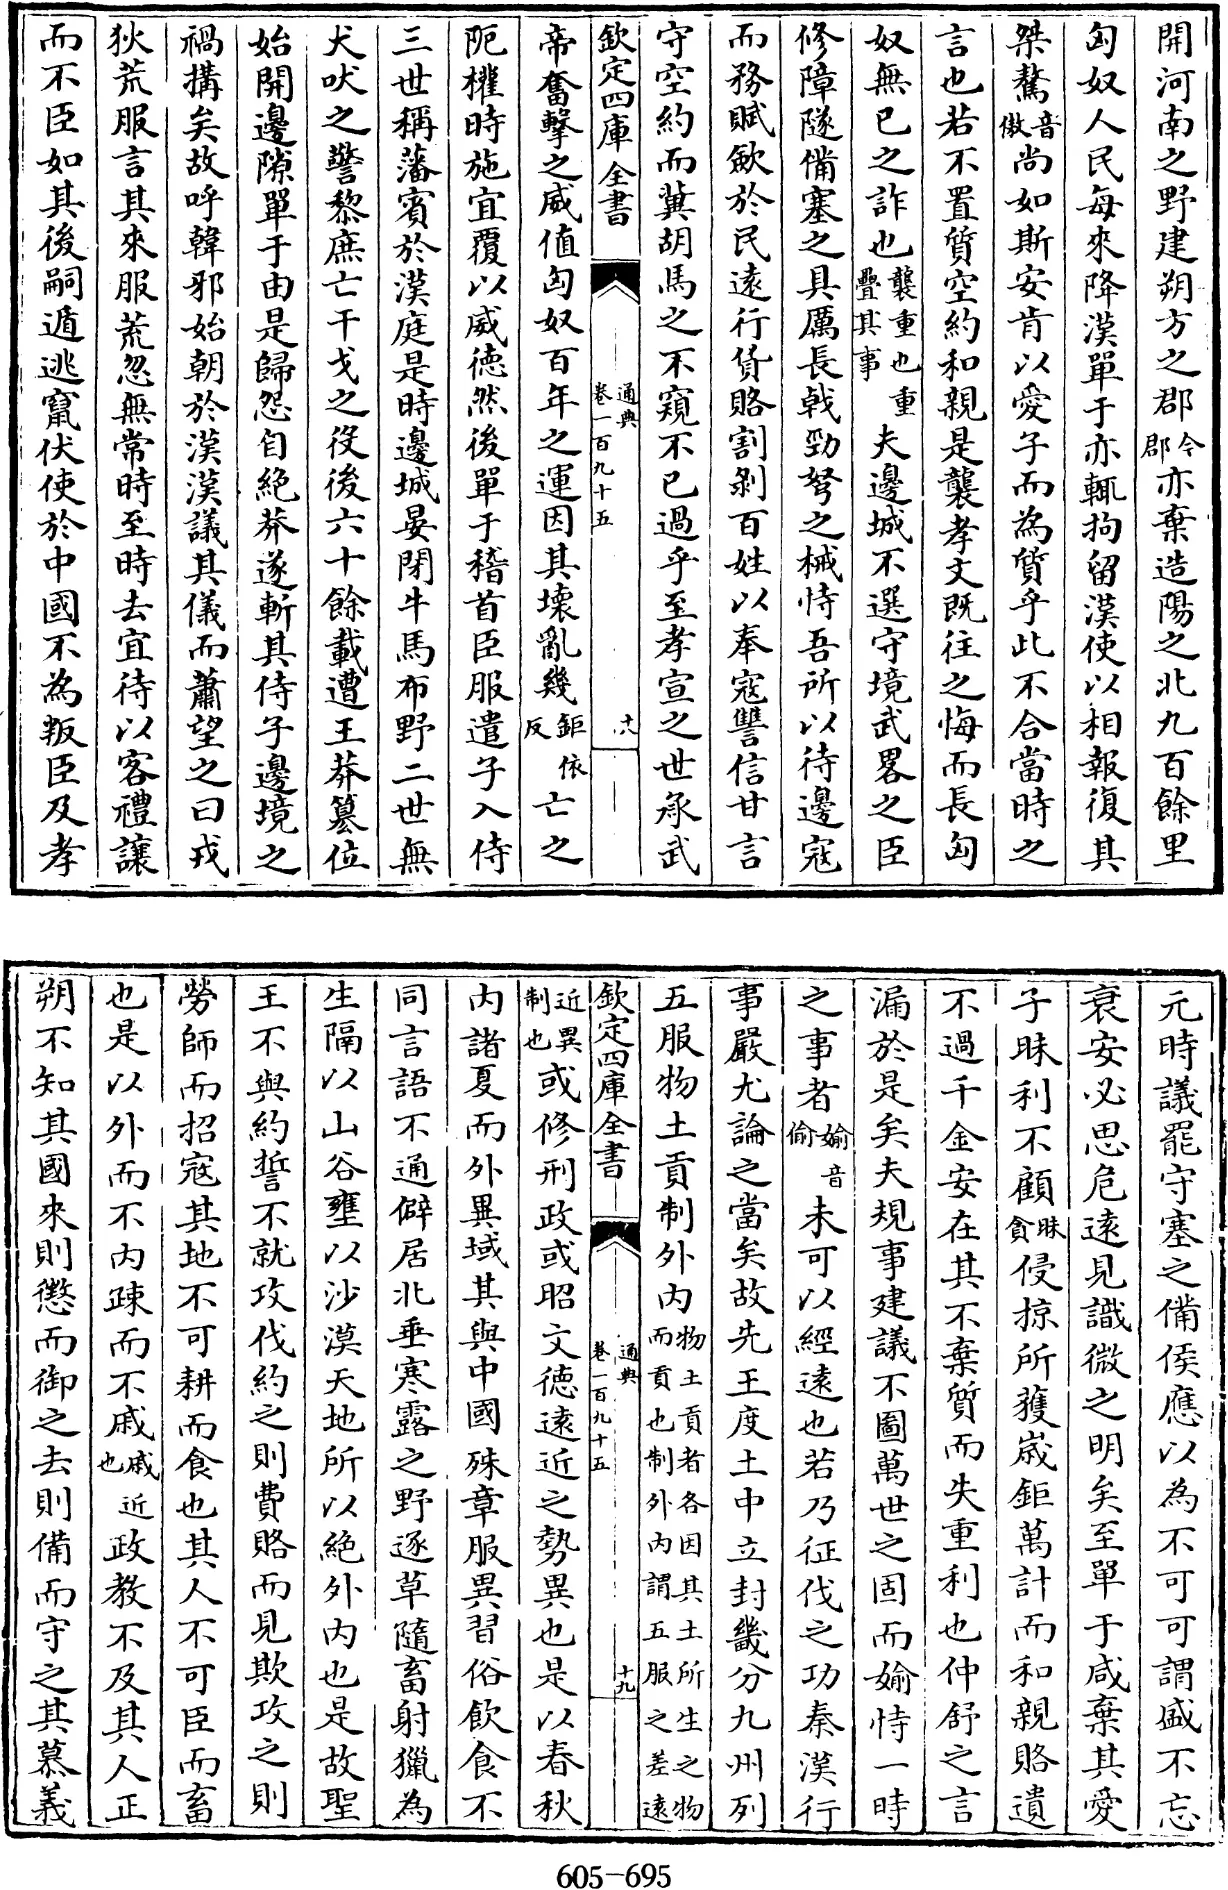 開河南之野建朔方之郡今郡亦棄造陽之北九百餘里
匈奴人民每來降漢單于亦輒拘留漢使以相報復其
桀驁音傲尚如斯安肯以愛子而為質乎此不合當時之
言也若不置質空約和親是襲孝文既往之悔而長匈
奴無已之詐也襲重也重疊其事夫邊城不選守境武畧之臣
修障隧備塞之具厲長戟勁弩之械恃吾所以待邊寇
而務賦斂於民遠行貨賂割剝百姓以奉寇讐信甘言
守空約而冀胡馬之不窺不已過乎至孝宣之世承武
欽定四庫全書 通典卷一百九十五 十八
帝奮擊之威值匈奴百年之運因其壞亂幾鉅依反亡之
阨權時施宜覆以威德然後單于稽首臣服遣子入侍
三世稱藩賓於漢庭是時邊城晏閉牛馬布野二世無
犬吠之警黎庶亡干戈之役後六十餘載遭王莽簒位
始開邊隙單于由是歸怨自絕莽遂斬其侍子邊境之
禍搆矣故呼韓邪始朝於漢漢議其儀而蕭望之曰戎
狄荒服言其來服荒忽無常時至時去宜待以客禮讓
而不臣如其後嗣遁逃竄伏使於中國不為叛臣及孝
元時議罷守塞之備侯應以為不可可謂盛不忘
衰安必思危遠見識微之明矣至單于咸棄其愛
子昧利不顧昧貪侵掠所獲嵗鉅萬計而和親賂遺
不過千金安在其不棄質而失重利也仲舒之言
漏於是矣夫規事建議不圖萬世之固而媮恃一時
之事者媮音偷未可以經遠也若乃征伐之功秦漢行
事嚴尤論之當矣故先王度土中立封畿分九州列
五服物土貢制外内物土貢者各因其土所生之物而貢也制外内謂五服之差遠
欽定四庫全書 通典卷一百九十五 十九
近異制也或修刑政或昭文德遠近之勢異也是以春秋
内諸夏而外異域其與中國殊章服異習俗飲食不
同言語不通僻居北垂寒露之野逐草隨畜射獵為
生隔以山谷壅以沙漠天地所以絶外内也是故聖
王不與約誓不就攻伐約之則費賂而見欺攻之則
勞師而招寇其地不可耕而食也其人不可臣而畜
也是以外而不内疎而不戚戚近也政教不及其人正
朔不知其國來則懲而御之去則備而守之其慕義
605-695